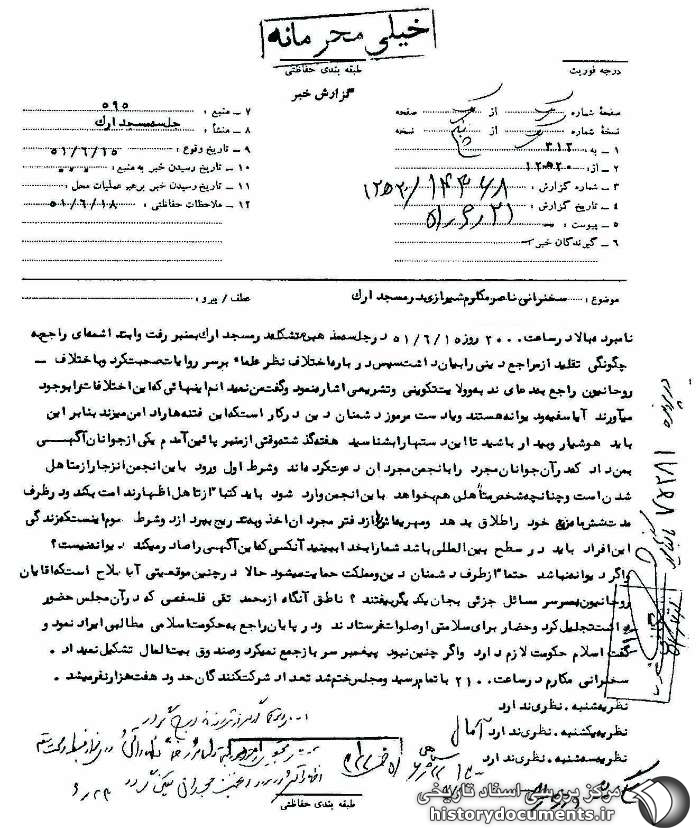 خیلی محرمانه
طبقه بندی حفاظتی
درجه فوریت
گزارش خبر
صفحهٔ شماره از صفحه
نسخهٔ شماره از نسخه
۱ ـ به : ۳۱۲
۲ ـ از : ۱۲ ۵۲۰
۳ ـ شماره گزارش :
۴ ـ تاریخ گزارش :
۵ ـ پیوست :
۶ ـ گیرندگان خبر :
۷ ـ منبع : ۵۹۵
۸ ـ منشأ : جلسه مسجد ارك
۹ ـ تاریخ وقوع : ۵۱/۶/۱۵
۱۰ ـ تاریخ رسیدن خبر به منبع :
۱۱ ـ تاریخ رسیدن خبر برهبر عملیات محل :
۱۲ ـ ملاحظات حفاظتی : ۵۱/۶/۱۸
موضوع : سخنرانی ناصر مکارم شیرازی در مسجد ارك عطف / پیرو :
نامبرده بالا در ساعت ۲۰۰۰ روز ۵۱/۶/۱۵ در جلسه مذهبی متشکله در مسجد ارك بمنبر رفت و ابتدا شمه‌ای راجع به
چگونگی تقلید از مراجع دینی را بیان داشت سپس در باره اختلاف نظر علماء بر سر روایات صحبت کرد و باختلاف ـ
روحانیون راجع به ولایت تکوینی و تشریعی اشاره نمود و گفت من نمیدانم اینهائی که این اختلافات را بوجود
میآورند آیا سفیه و دیوانه هستند و یا دست مرموز دشمنان دین در کار است که این فتنه‌ها را دامن میزند بنابر این
باید هوشیار و بیدار باشید تا این دستها را بشناسید هفته گذشته وقتی از منبر پائین آمدم یکی از جوانان آگهی
بمن داد که در آن جوانان مجرد را بانجمن مجردان دعوت کرده‌اند و شرط اول ورود باین انجمن انزجار از متاهل
شدن است و چنانچه شخص متأهلی هم بخواهد باین انجمن وارد شود باید کتبا" از تاهل اظهار ندامت بکند و در ظرف
مدت شش ماه زن خود را طلاق بدهد و مهریه‌اش را از دفتر مجردان اخذ و بتدریج بپردازد و شرط سوم اینستکه زندگی
این افراد باید در سطح بین المللی باشد شما را بخدا ببینید آنکسی که این آگهی را صادر میکند دیوانه نیست؟
و اگر دیوانه نباشد حتما" از طرف دشمنان دین و مملکت حمایت میشود حالا در چنین موقعیتی آیا صلاح است که آقایان
روحانیون بر سر مسائل جزئی بجان یکدیگر بیفتند ؟ ناطق آنگاه از محمد تقی فلسفی که در آن مجلس حضور
داشت تجلیل کرد و حضار برای سلامتی او صلوات فرستادند و در پایان راجع به حکومت اسلامی مطالبی ایراد نمود و
گفت اسلام حکومت لازم دارد و اگر چنین نبود پیغمبر سرباز جمع نمیکرد و صندوق بیت المال تشکیل نمیداد ۰
سخنرانی مکارم در ساعت ۲۱۰۰ باتمام رسید و مجلس ختم شد تعداد شرکت کنندگان حدود هفت هزار نفر میشد ۰
نظریه شنبه ۰ نظری ندارد
نظریه یکشنبه ۰ نظری ندارد
نظریه سه‌شنبه ۰ نظری ندارد
طبقه بندی حفاظتی
مرکز بررسی اسناد تاریخی
historydocuments.ir